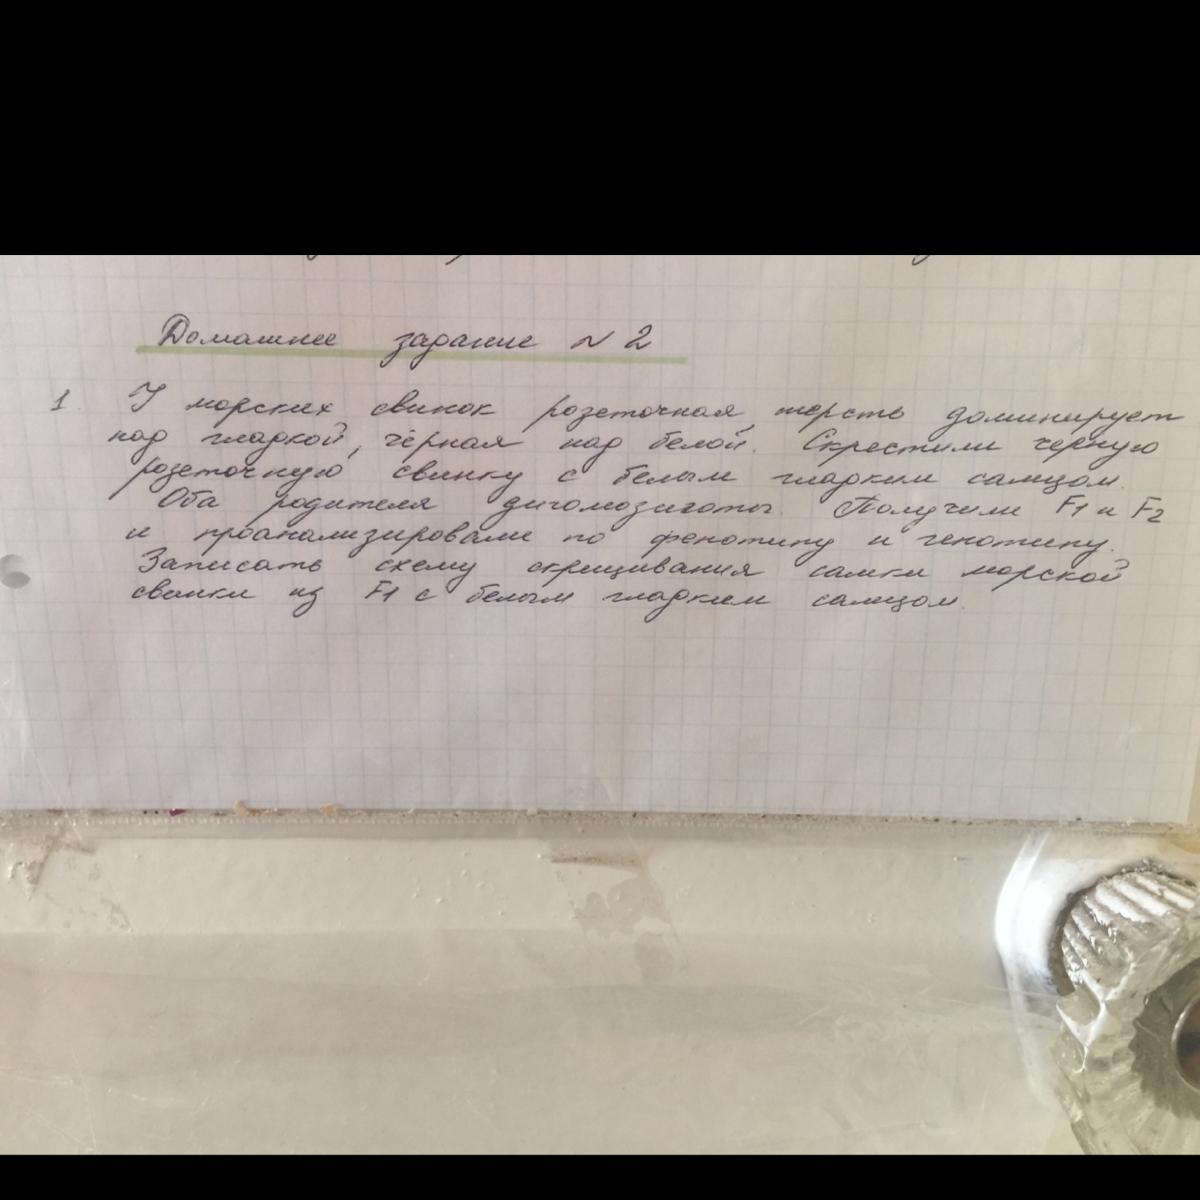 Домашнее задание N 2
1 У морских свинок розеточная шерсть доминирует
над гладкой, чёрная над белой. Скрестили чёрную
розеточную свинку с белым гладким самцом.
Оба родителя дигомозиготы. Получили F1 и F2
и проанализировали по фенотипу и генотипу.
Записать схему скрещивания самки морской
свинки из F1 с белым гладким самцом.